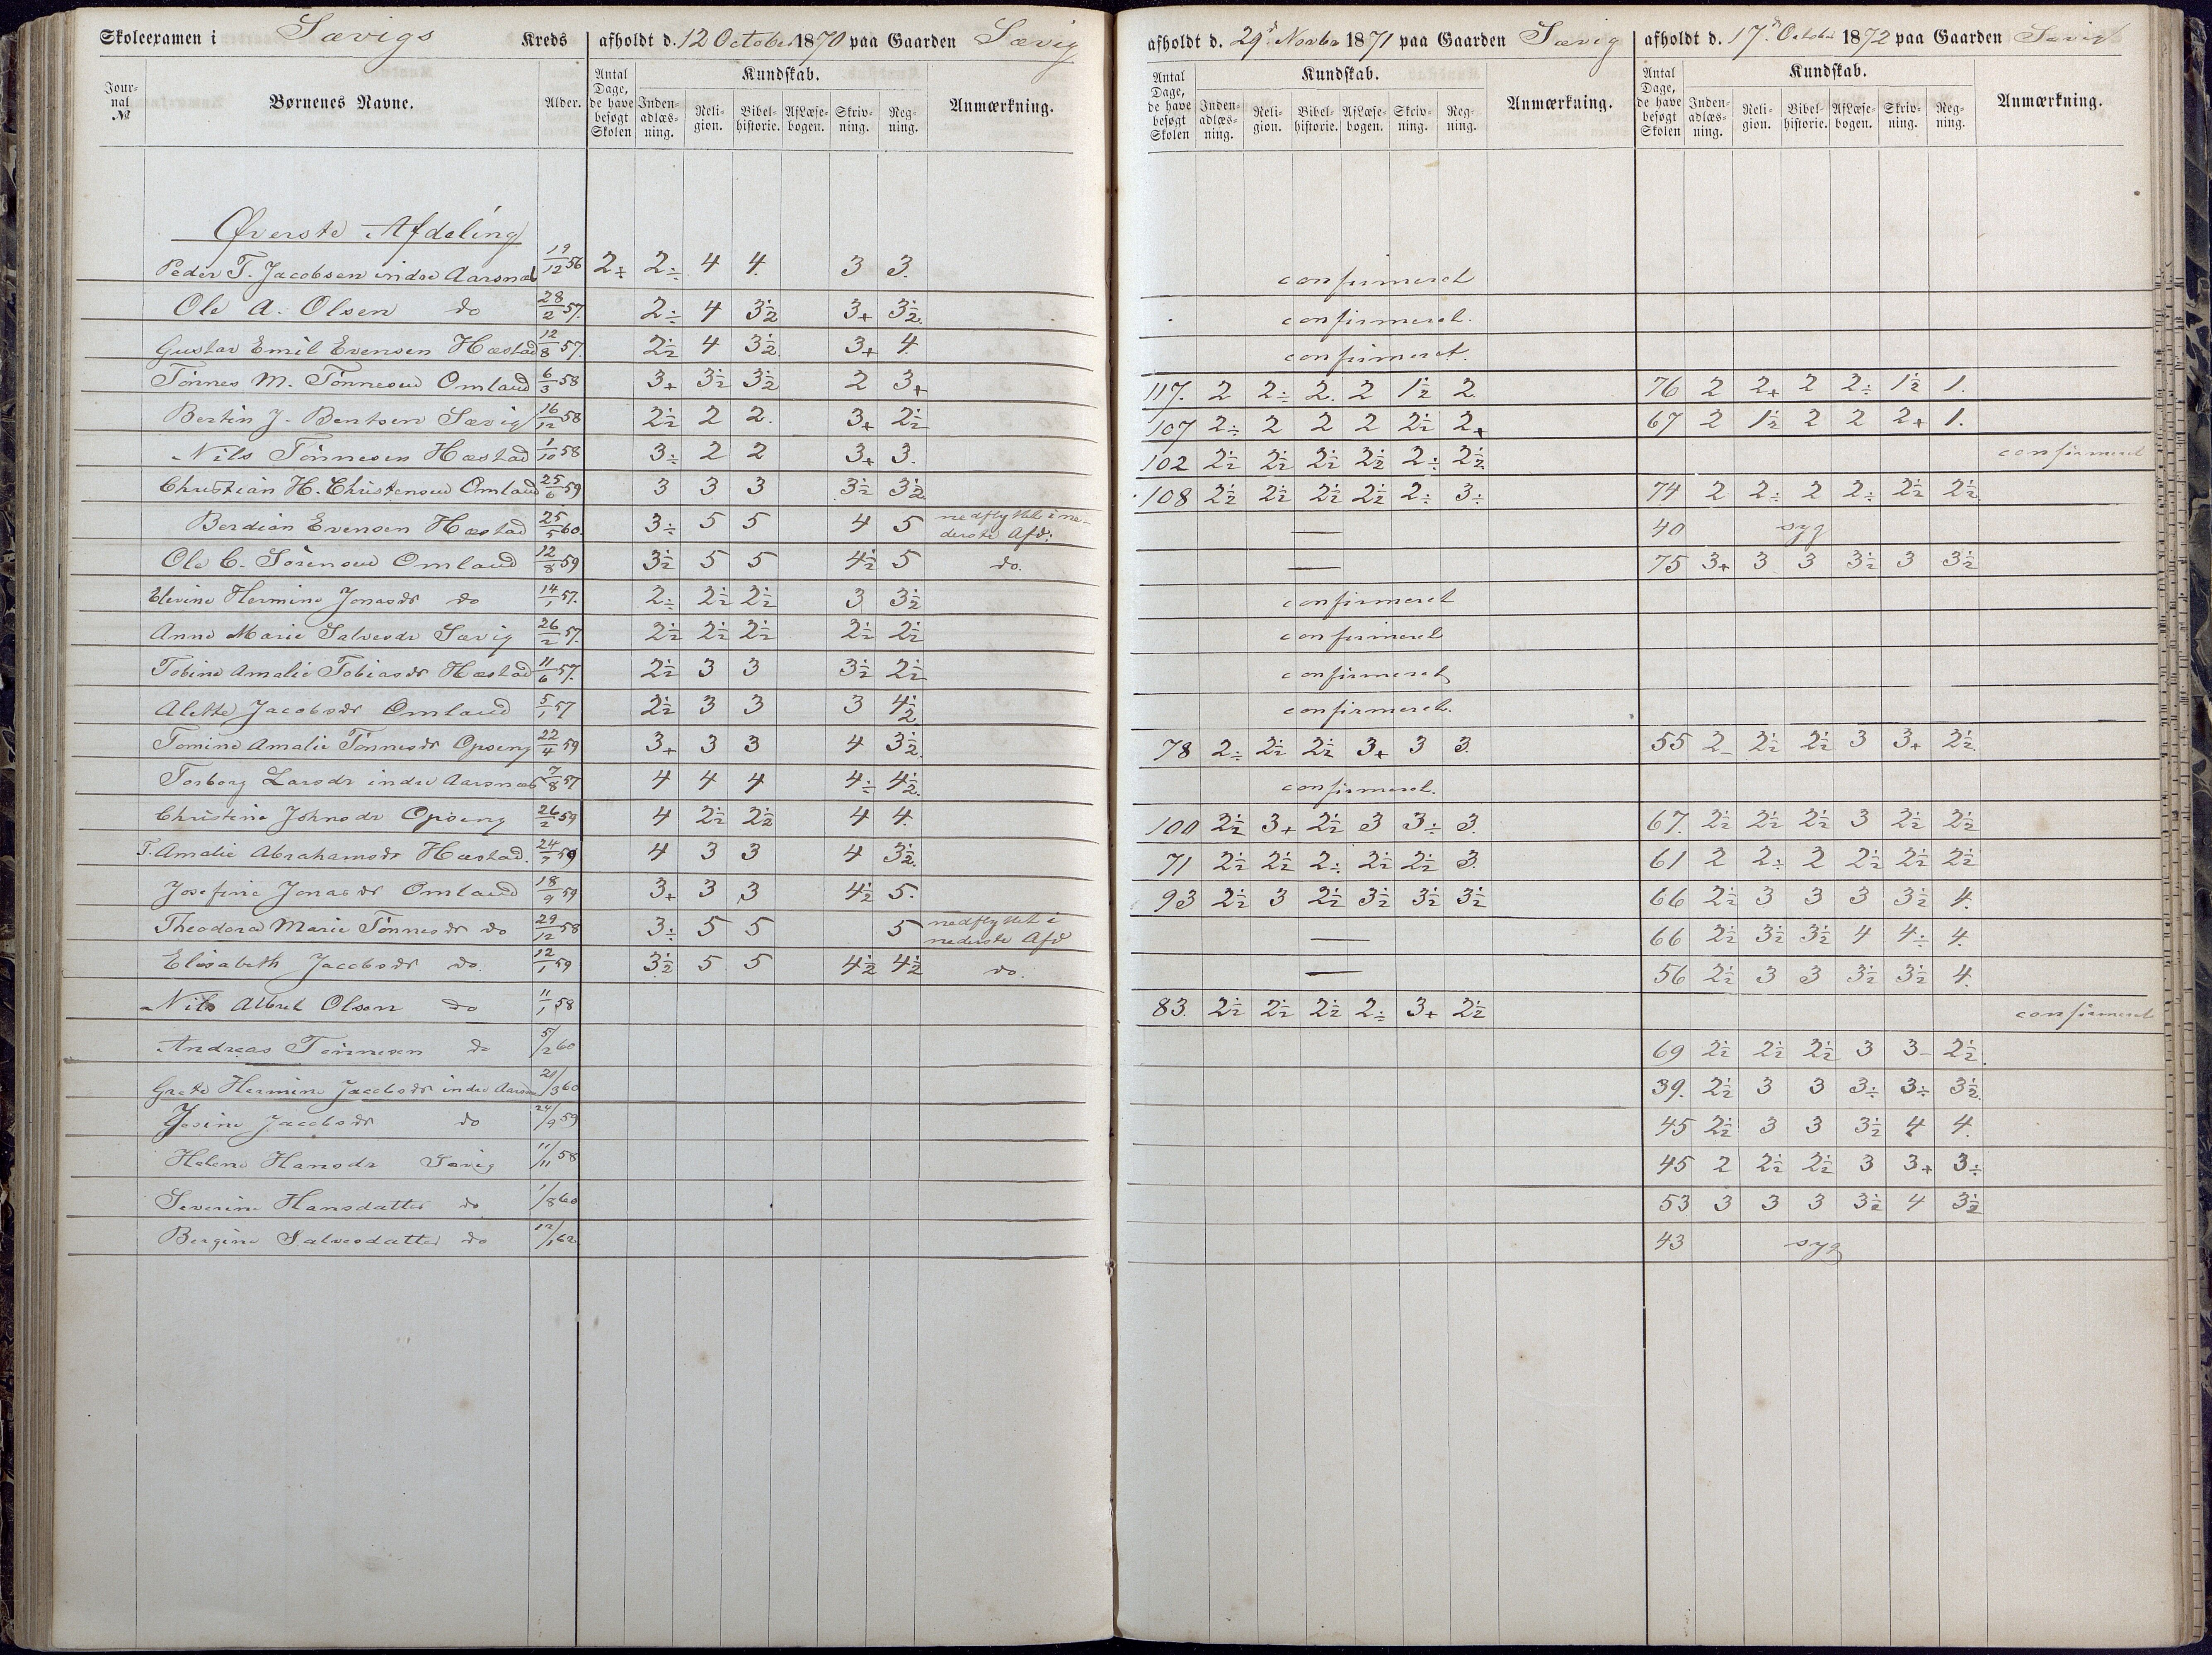 Skoleexamen i Sævigs Kreds afholdt d. 12 October 1870 paa Gaarden Sævig
afholdt d. 29d Novbr 1871 paa Gaarden Sævig afholdt d. 17d October 1872 paa Gaarden Sævig
Journal № Børnenes Navne. Alder. Antal Dage, de have besøgt Skolen Kundskab. Indenadlæsning. Religion. Bibelhistorie. Af Læsebogen. Skrivning. Regning. Anmærkning.
Antal Dage, de have besøgt Skolen Kundskab. Indenadlæsning. Religion. Bibelhistorie. Af Læsebogen. Skrivning. Regning. Anmærkning.
Antal Dage, de have besøgt Skolen Kundskab. Indenadlæsning. Religion. Bibelhistorie. Af Læsebogen. Skrivning. Regning. Anmærkning.
Øverste Afdeling
Peder T. Jacobsen indre Aarsnæs 19/12 56 2+ 2÷ 4 4. 3 3. confirmeret
Ole A. Olsen do 28/2 57. 2÷ 4 3½ 3+ 3½. confirmeret.
Gustav Emil Evensen Hæstad 12/8 57. 2½ 4 3½. 3+ 4. confirmeret.
Tönnes M. Tönnesen Omland 6/3 58 3+ 3½ 3½ 2 3+ 117. 2 2÷ 2. 2 1½ 2. 76 2 2+ 2 2÷ 1½ 1.
Bertin J. Bentsen Sævig 16/12 58 2½ 2 2. 3+ 2½ 107 2÷ 2 2 2 2½ 2+ 67 2 1½ 2 2 2+ 1.
Nils Tönnesen Hæstad 1/10 58 3÷ 2 2 3+ 3. 102 2½ 2½ 2½ 2½ 2÷ 2½ confirmeret
Christian H. Christensen Omland 25/6 59 3 3 3 3½ 3½ 108 2½ 2½ 2½ 2½ 2÷ 3÷ 74 2 2÷ 2 2÷ 2½ 2½.
Berdian Evensen Hæstad 25/5 60. 3÷ 5 5 4 5 nedflyttet i nederste Afd: — 40 syg
Ole C. Sörensen Omland 12/8 59 3½ 5 5 4½ 5 do. — 75 3+ 3 3 3½ 3 3½
Elevine Hermine Jonasdr do 14/1 57. 2÷ 2½ 2½ 3 3½ confirmeret
Anne Marie Salvesdr Sævig 26/2 57. 2½ 2½ 2½ 2½ 2½ confirmeret
Tobine Amalie Tobiasdr Hæstad 11/6 57. 2½ 3 3 3½ 2½ confirmeret
Alette Jacobsdr Omland 5/1 57 2½ 3 3 3 4½ confirmeret.
Tomine Amalie Tönnesdr Opseng 22/4 59 3+ 3 3 4 3½. 78 2÷ 2½ 2½ 3+ 3 3. 55 2– 2½ 2½ 3 3+ 2½.
Torborg Larsdr indre Aarsnæs 7/8 57 4 4 4 4÷ 4½. confirmeret.
Christine Johnsdr Opseng 26/2 59 4 2½ 2½ 4 4. 100 2½ 3+ 2½ 3 3÷ 3. 67. 2½ 2½ 2½ 3 2½ 2½
T. Amalie Abrahamsdr Hæstad. 24/7 59 4 3 3 4 3½. 71 2½ 2½ 2÷ 2½ 2½ 3. 61 2 2÷ 2 2½ 2½ 2½
Josefine Jonasdr Omland 18/9 59 3+ 3 3 4½ 5. 93 2½ 3 2½ 3½ 3½ 3½ 66 2½ 3 3 3 3½ 4.
Theodora Marie Tönnesdr do 29/12 58 3÷ 5 5 5 nedflyttet i nederste Afd — 66 2½ 3½ 3½ 4 4÷ 4.
Elisabeth Jacobsdr do. 12/1 59 3½ 5 5 4½ 4½ do. — 56 2½ 3 3 3½ 3½ 4.
Nils Albret Olsen do 11/1 58 83. 2½ 2½ 2½ 2÷ 3+ 2½ confirmeret
Andreas Tönnesen do 5/2 60 69 2½ 2½ 2½ 3 3– 2½.
Grete Hermine Jacobsdr indre Aarsnæs 21/3 60 39. 2½ 3 3 3÷ 3÷ 3½.
Josine Jacobsdr do 24/9 59 45 2½ 3 3 3½ 4 4.
Helene Hansdr Sævig 11/11 58 45 2 2½ 2½ 3 3+ 3÷
Severine Hansdatter do 1/8 60 53 3 3 3 3½ 4 3½
Bergine Salvesdatter do 12/1 62 43 syg